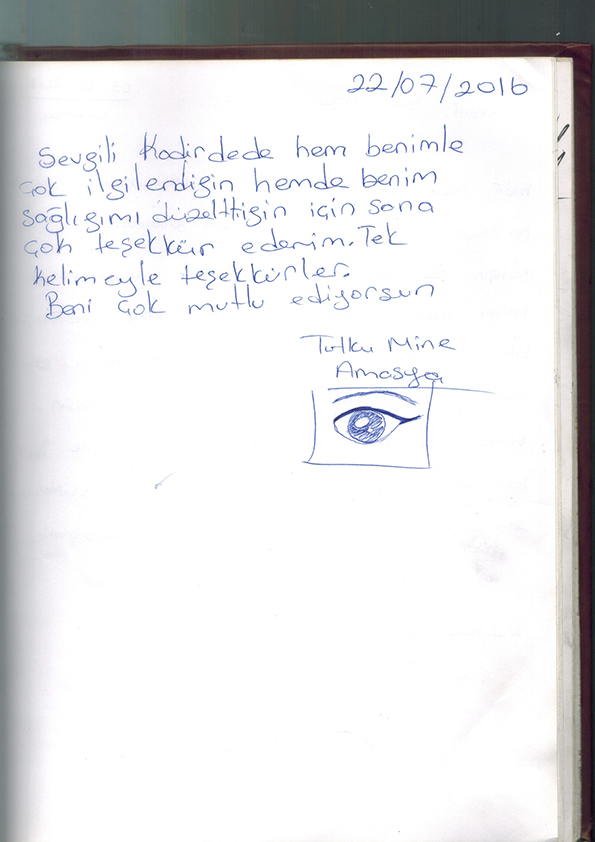 22/07/2016
Sevgili Kadirdede hem benimle
çok ilgilendiğin hemde benim
sağlığımı düzelttiğin için sana
çok teşekkür ederim. Tek
kelimeyle teşekkürler.
Beni çok mutlu ediyorsun
Tutku Mine
Amasya